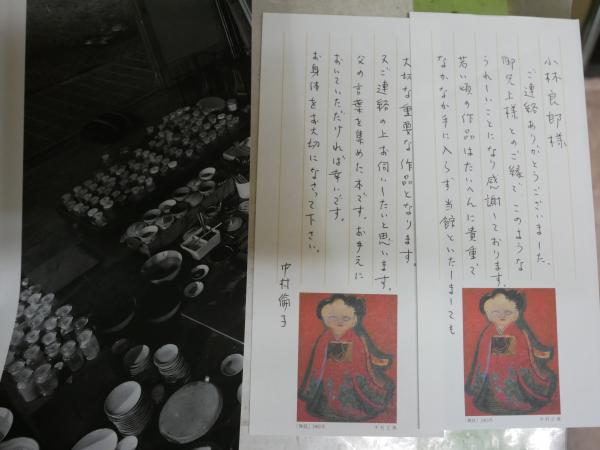 小林良郎様
ご連絡ありがとうございました、
御兄上様とのご縁でこのような
うれしいことになり感謝しております。
若い頃の作品はたいへんに貴重で
なかなか手に入らず当館といたしましても
大切な重要な作品となります。
又ご連絡の上お伺いしたいと思います。
父の言葉を集めた本です。お手元に
おいていただければ幸いです。
お身体をお大切になさって下さい。
中村倫子